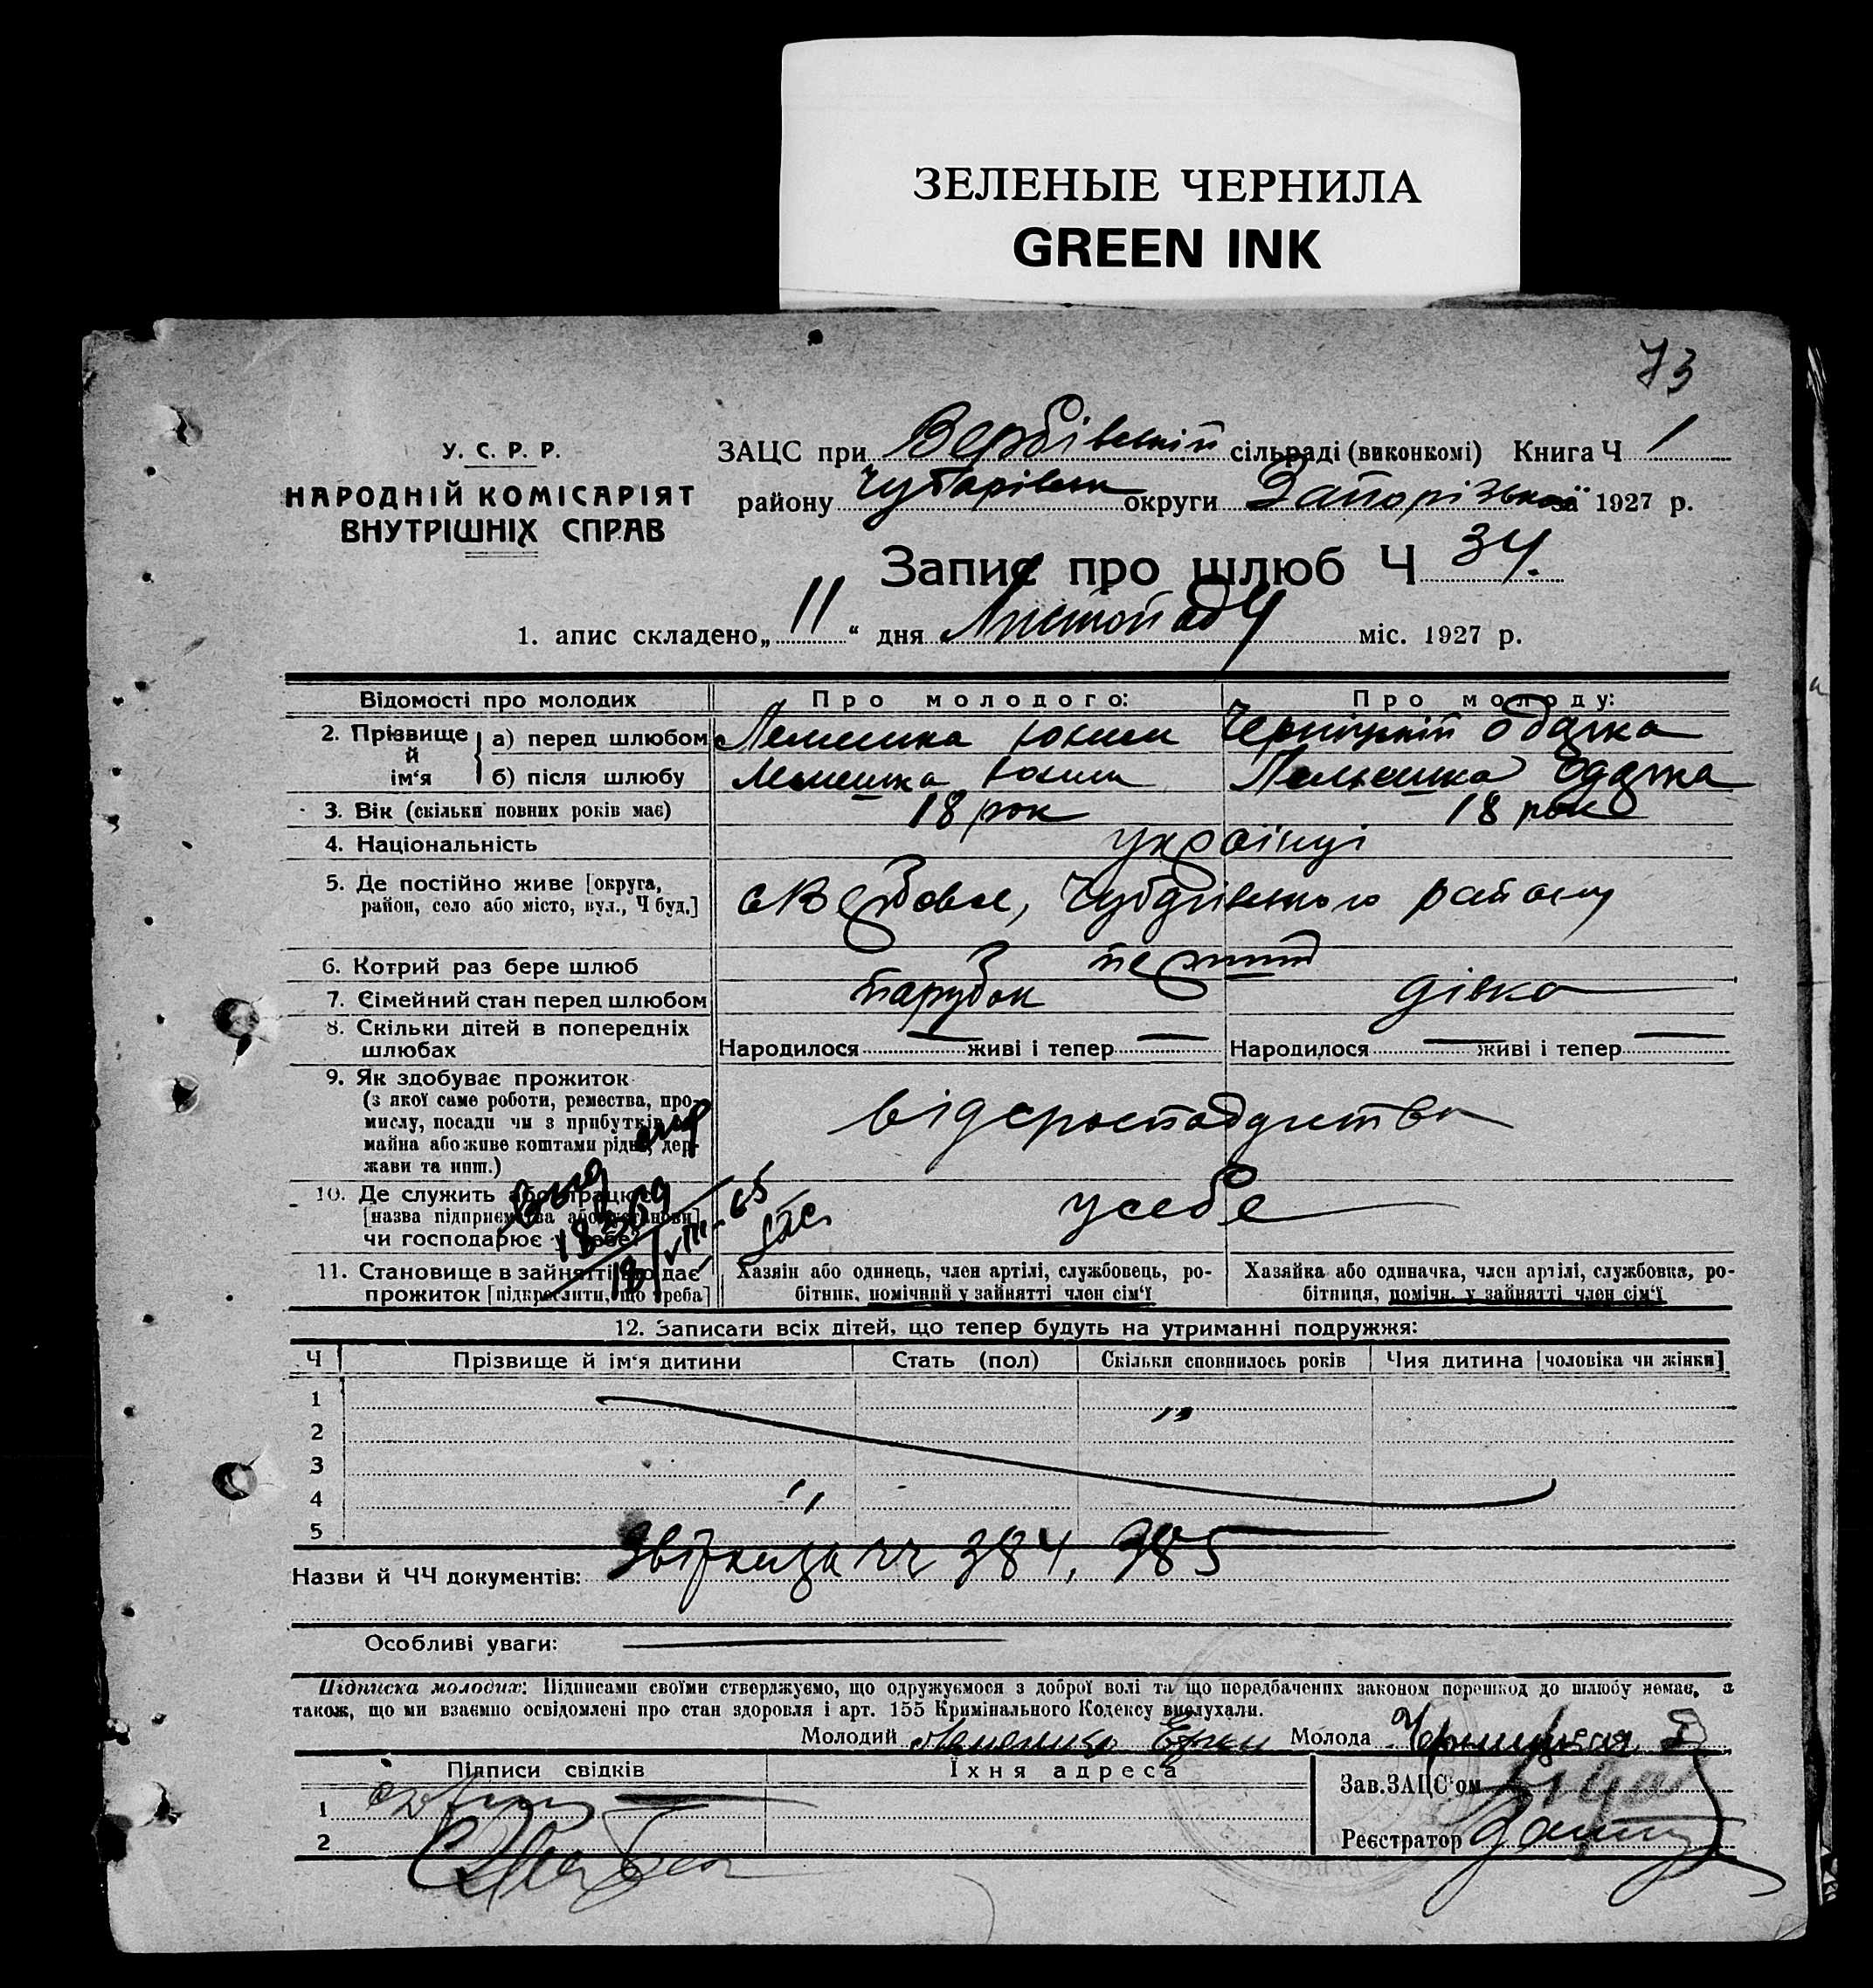 ЗЕЛЕНЫЕ ЧЕРНИЛА
GREEN INK
73
У. С. Р. Р.
НАРОДНІЙ КОМІСАРІЯТ
ВНУТРІШНІХ СПРАВ
ЗАЦС при Вербівській сільраді (виконкомі) Книга Ч 1
району Чубарівськ округи Запорізької 1927 р.
Запис про шлюб Ч 34.
1. апис складено „ 11 “ дня Листопаду міс. 1927 р.
Відомості про молодих Про молодого: Про молоду:
2. Прізвище й ім‘я
а) перед шлюбом Лемешка Юхим Черніцькій Одарка
б) після шлюбу Лемешка Юхим Лемешка Одарка
3. Вік (скільки повних років має) 18 рок 18 рок
4. Національність українці
5. Де постійно живе [округа,
район, село або місто, вул., Ч буд.] с Вербове, Чубарівського району
6. Котрий раз бере шлюб перший
7. Сімейний стан перед шлюбом парубок дівка
8. Скільки дітей в попередніх
шлюбах Народилося живі і тепер Народилося живі і тепер
9. Як здобуває прожиток
(з якої саме роботи, ремества, про-
мислу, посади чи з прибутків
майна або живе коштами рідні, дер-
жави та инш.)
10. Де служить або працює
[назва підприємства або установи]
чи господарює у себе? усебе
11. Становище в зайнятті що дає
прожиток [підкреслити, що треба]
Хазяїн або одинець, член артілі, службовець, ро-
бітник, помічний у зайнятті член сім‘ї
Хазяйка або одиначка, член артілі, службовка, ро-
бітниця, помічн. у зайнятті член сім‘ї
12. Записати всіх дітей, що тепер будуть на утриманні подружжя:
Ч Прізвище й ім‘я дитини Стать (пол) Скільки сповнилось років Чия дитина [чоловіка чи жінки]
1
2
3
4
5
Назви й ЧЧ документів: чч 384, 385
Особливі уваги:
Підписка молодих: Підписами своїми стверджуємо, що одружуємося з доброї волі та що передбачених законом перешкод до шлюбу немає, а
також, що ми взаємно освідомлені про стан здоровля і арт. 155 Кримінального Кодексу вислухали.
Молодий Молода
Підписи свідків Їхня адреса
Зав. ЗАЦС‘ом
1
2
Реєстратор